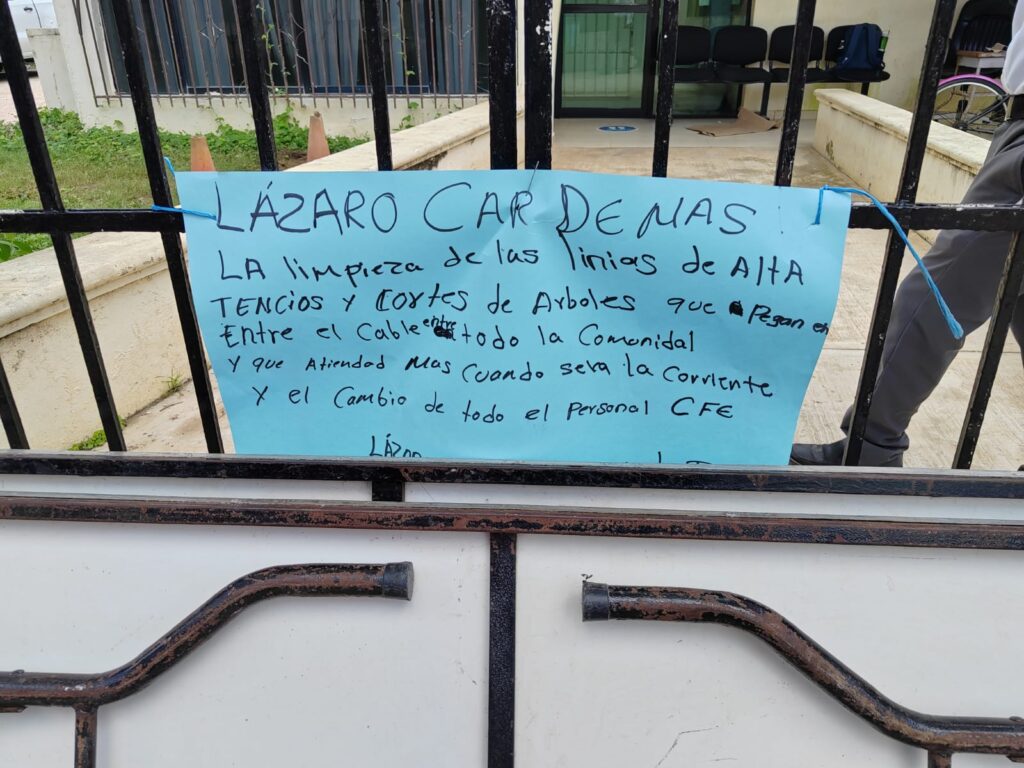 LÁZARO CARDENAS
LA limpieza de las linias de AltA
TENCIOS y Cortes de Arboles que Pegan en
Entre el Cable entre todo la Comunidal
y que Atiendad Mas Cuando seva la Corriente
y el Cambio de todo el Personal CFE